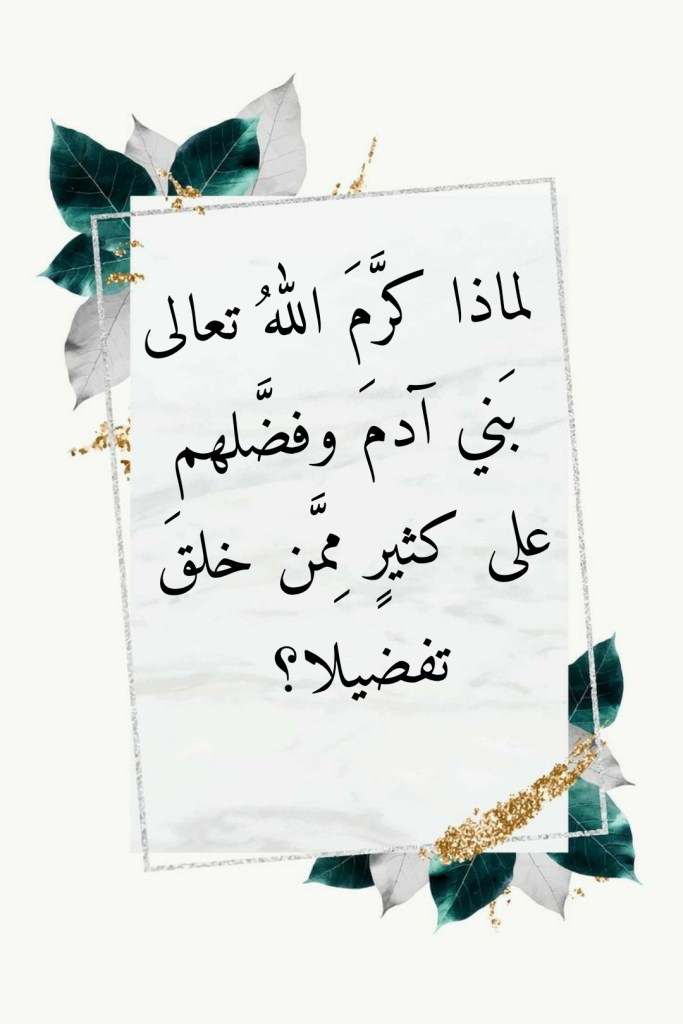 لماذا كرَّمَ اللهُ تعالى
بَني آدمَ وفضَّلهم
على كثيرٍ مِمَّن خلقَ
تفضيلا؟